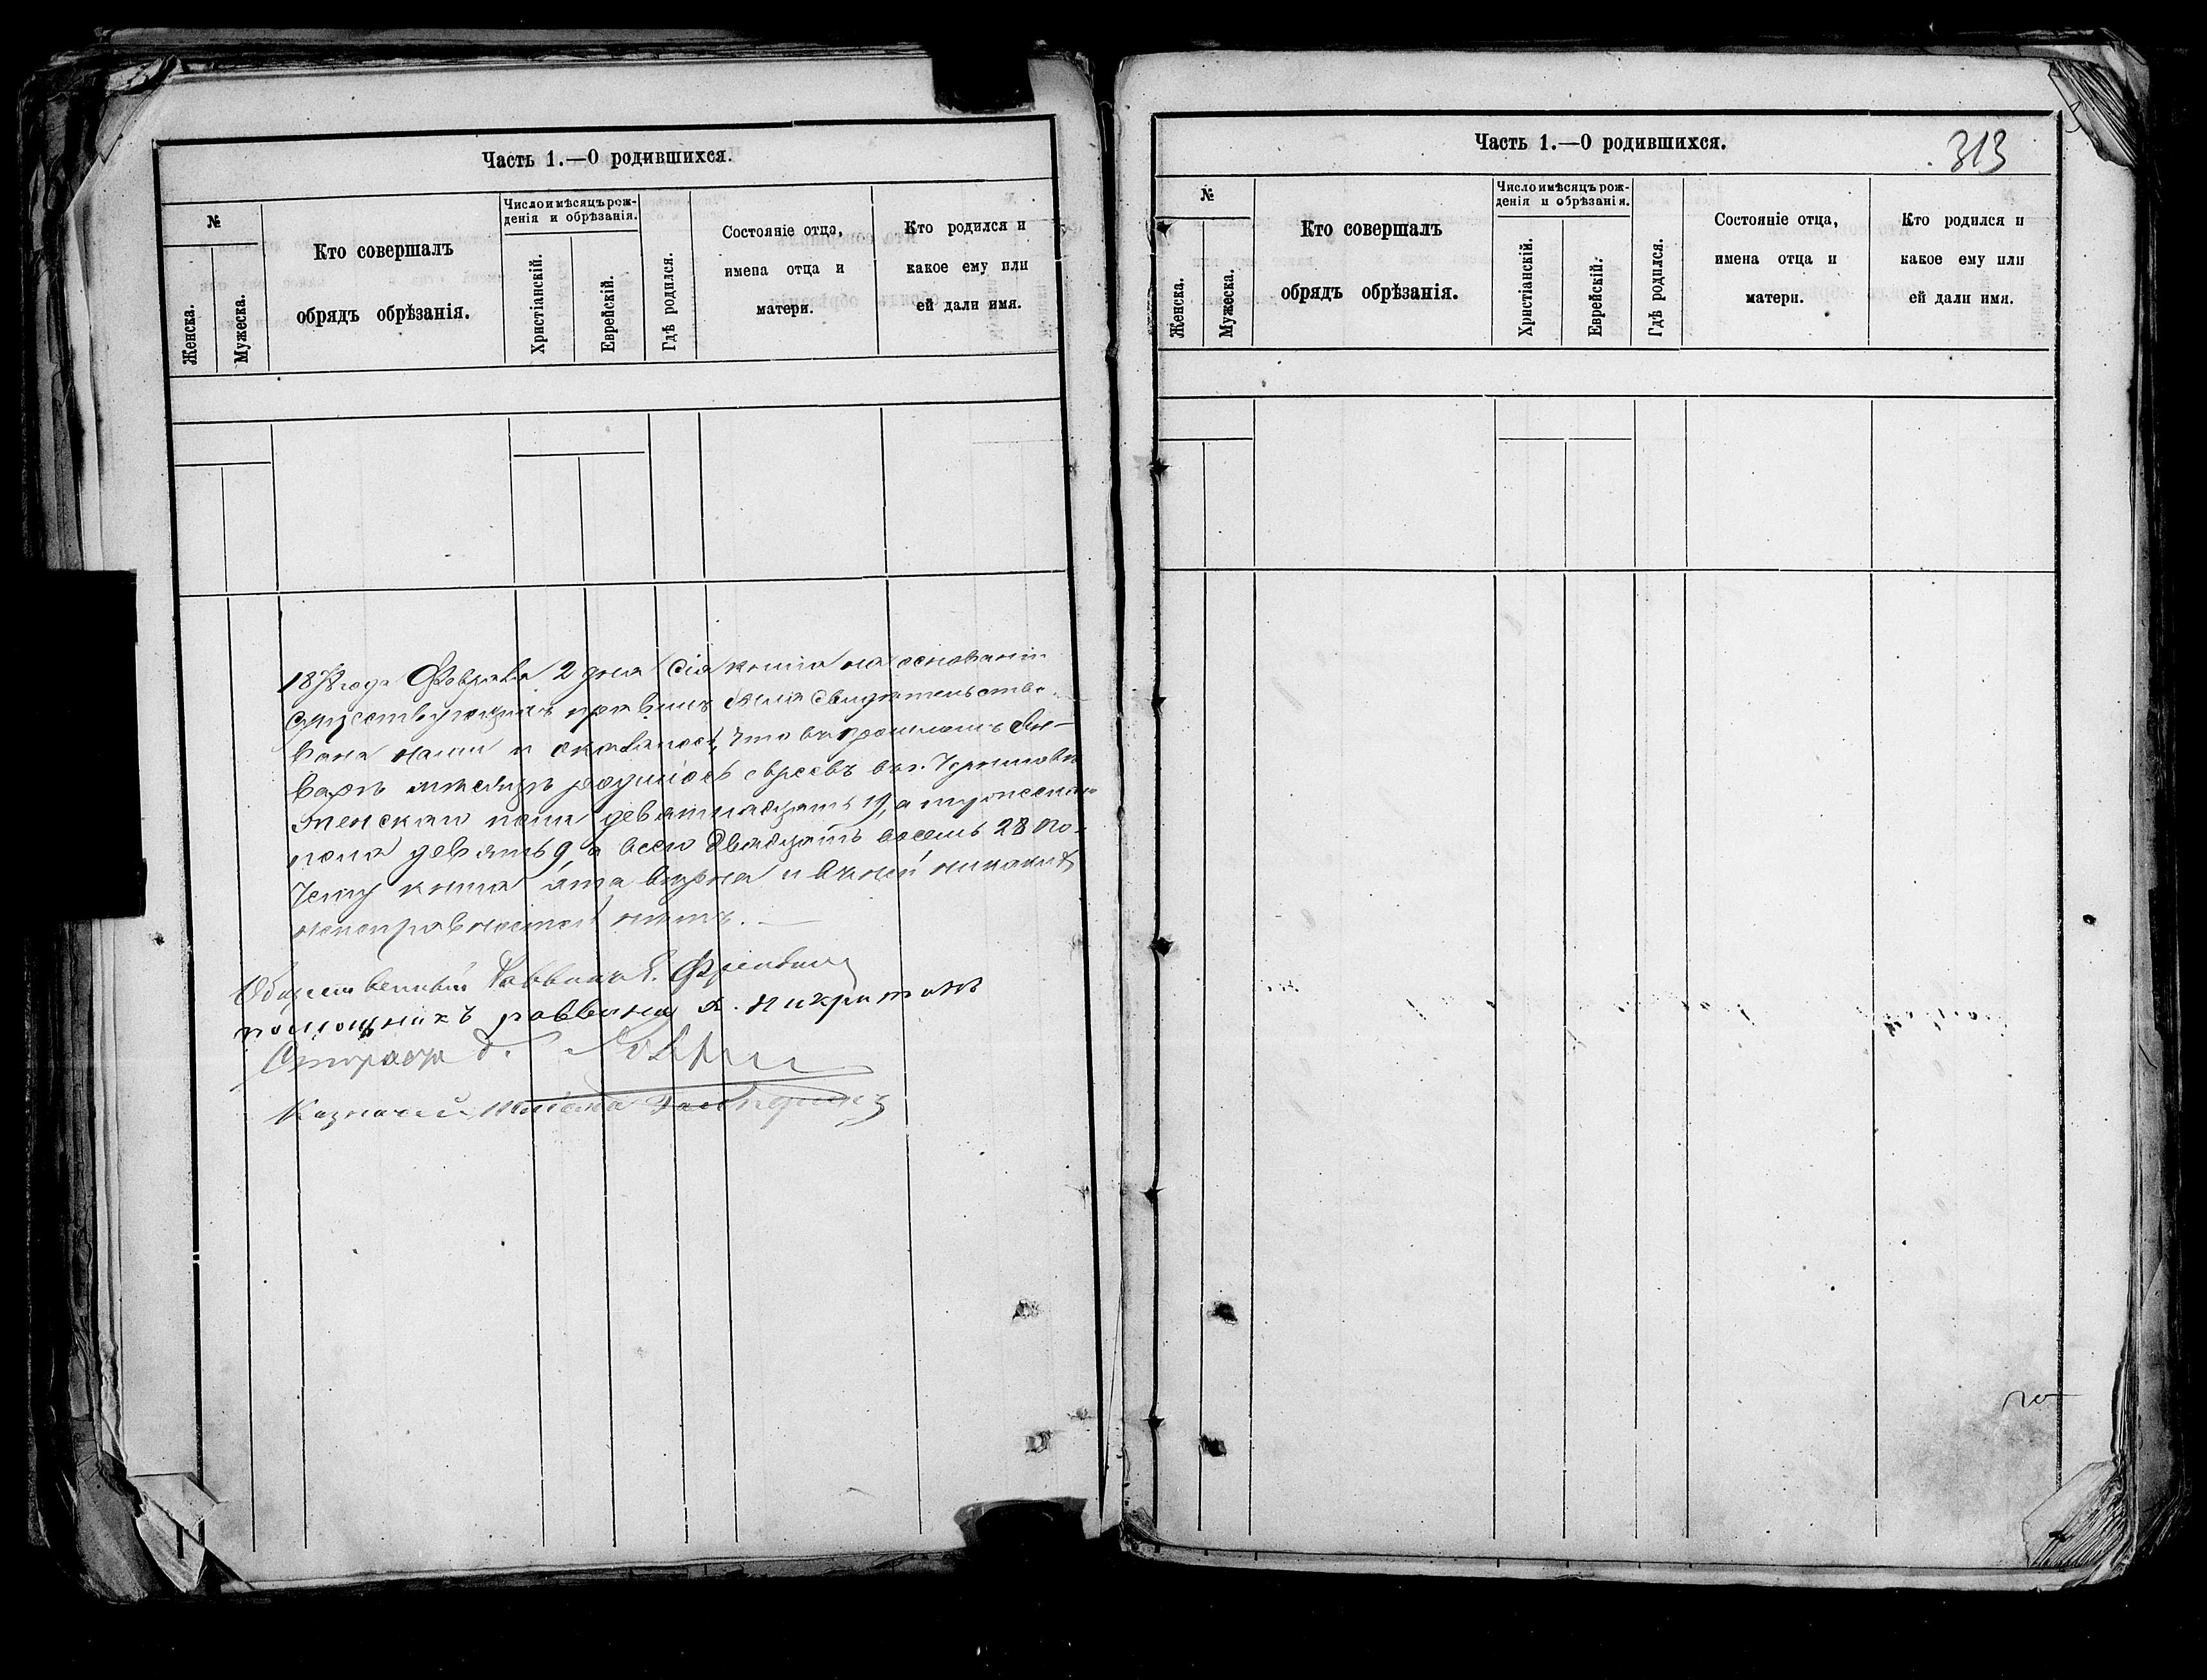 Часть 1.—О родившихся.
№
Женска.
Мужеска.
Кто совершалъ
обрядъ обрѣзанія.
Число и мѣсяцъ рож-
денія и обрѣзанія.
Христіанскій.
Еврейскій.
Гдѣ родился.
Состояніе отца,
имена отца и
матери.
Кто родился и
какое ему или
ей дали имя.
1878 года Февраля 2 дня Сія книга на основаніи
существующихъ правилъ была Свидѣтельство-
вана нами и оказалось, что въ прошломъ Ян-
варѣ мѣсяцѣ родилось евреевъ въ г.
Женскаго пола девятнадцать 19, а мужескаго
пола девять 9, а всего двадцать восемь 28 по-
чему книга эта вѣрна и въ ней никакихъ
неисправностей нѣтъ. —
Общественный Раввинъ
помощникъ раввина
Староста
Казначей
Часть 1.—О родившихся.
313
№
Женска.
Мужеска.
Кто совершалъ
обрядъ обрѣзанія.
Число и мѣсяцъ рож-
денія и обрѣзанія.
Христіанскій.
Еврейскій.
Гдѣ родился.
Состояніе отца,
имена отца и
матери.
Кто родился и
какое ему или
ей дали имя.